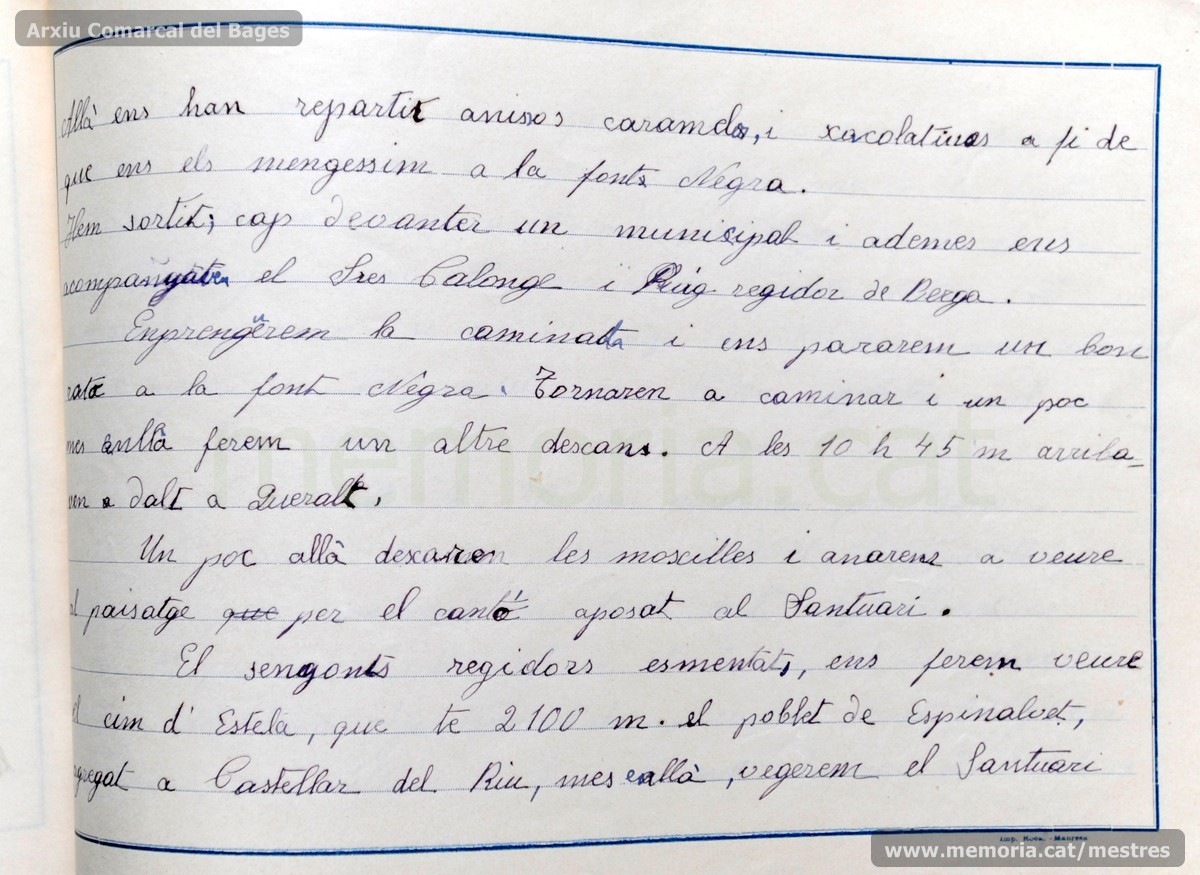 Arxiu Comarcal del Bages
Allà ens han repartit anisos caramels, i xacolatines a fi de
que ens els mengessim a la font Negra.
Hem sortit; cap devanter un municipal i ademes ens
acompanyaven el Sres Calonge i Puig regidor de Berga.
Enprenguerem la caminada i ens pararem un bon
rato a la font Negra. Tornaren a caminar i un poc
mes enllà ferem un altre descans. A les 10 h 45 m arriba-
ven a dalt a Queralt.
Un poc allà dexaren les moxilles i anarem a veure
el paisatge que per el cantó aposat al Santuari.
El sengonts regidors esmentats, ens ferem veure
el cim d' Estela, que te 2100 m. el poblet de Espinalvet,
agregat a Castellar del Riu, mes enllà, vegerem el Santuari
Imp. Roca. - Manresa
memoria.cat
www.memoria.cat/mestres